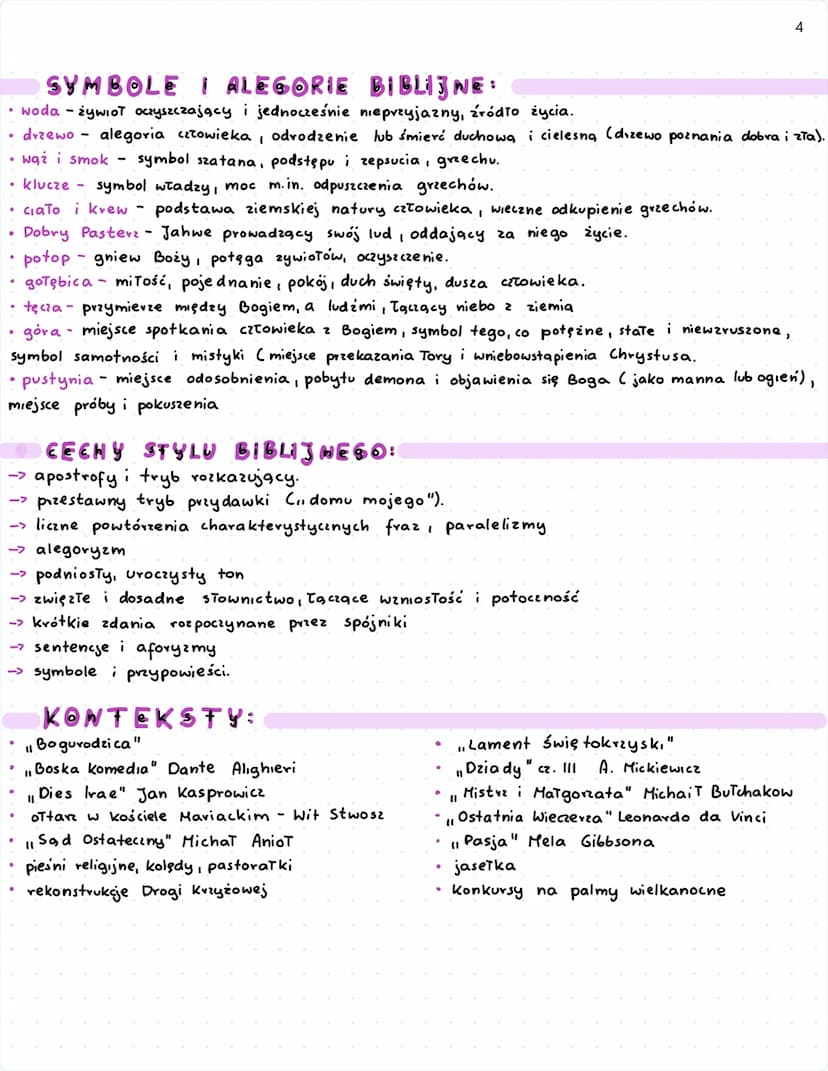 4
SYMBOLE I ALEGORIE BIBLIJNE:
• woda – żywioł oczyszczający i jednocześnie nieprzyjazny, źródło życia.
• drzewo – alegoria człowieka, odrodzenie lub śmierć duchową i cielesną (drzewo poznania dobra i zła).
• wąż i smok – symbol szatana, podstępu i zepsucia, grzechu.
• klucze – symbol władzy, moc m.in. odpuszczenia grzechów.
• ciało i krew – podstawa ziemskiej natury człowieka, wieczne odkupienie grzechów.
• Dobry Pasterz – Jahwe prowadzący swój lud, oddający za niego życie.
• potop – gniew Boży, potęga żywiołów, oczyszczenie.
• gołębica – miłość, pojednanie, pokój, duch święty, dusza człowieka.
• tęcza – przymierze między Bogiem, a ludźmi, łączący niebo z ziemia
• góra – miejsce spotkania człowieka z Bogiem, symbol tego, co potężne, stałe i niewzruszone,
symbol samotności i mistyki (miejsce przekazania Tory i wniebowstąpienia Chrystusa.
• pustynia – miejsce odosobnienia, pobytu demona i objawienia się Boga (jako manna lub ogień),
miejsce próby i pokuszenia
CECHY STYLU BIBLIJNEGO:
–> apostrofy i tryb rozkazujący.
–> przestawny tryb przydawki („domu mojego").
–> liczne powtórzenia charakterystycznych fraz, paralelizmy
–> alegoryzm
–> podniosły, uroczysty ton
–> zwięzłe i dosadne słownictwo, łączące wzniosłość i potoczność
–> krótkie zdania rozpoczynane przez spójniki
–> sentencje i aforyzmy
–> symbole i przypowieści.
KONTEKSTY:
• „Bogurodzica"
• „Boska Komedia" Dante Alighieri
• „Dies Irae" Jan Kasprowicz
• ołtarz w Kościele Mariackim – Wit Stwosz
• „Sąd Ostateczny" Michał Anioł
• pieśni religijne, kolędy, pastorałki
• rekonstrukcje Drogi Krzyżowej
• „Lament świętokrzyski"
• „Dziady" cz. III A. Mickiewicz
• „Mistrz i Małgorzata" Michaił Bułchakow
• „Ostatnia Wieczerza" Leonardo da Vinci
• „Pasja" Mela Gibbsona
• jasełka
• Konkursy na palmy wielkanocne